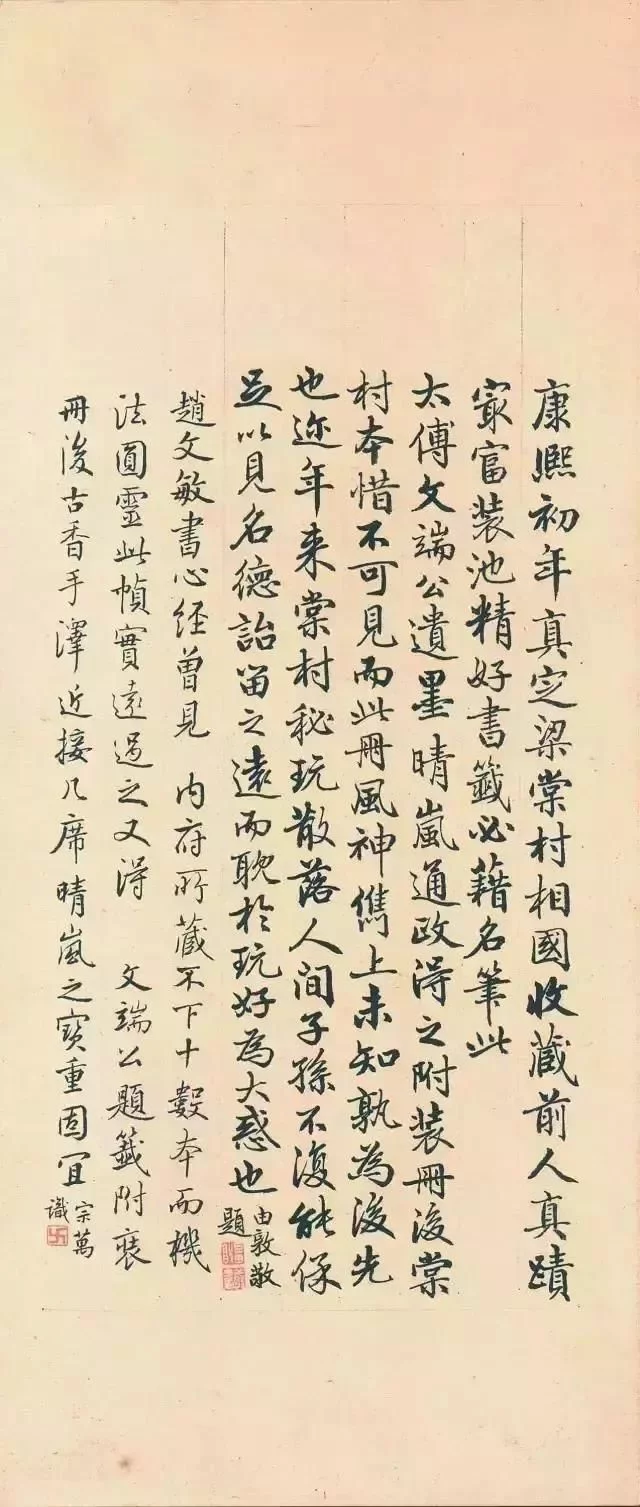 康熙初年真定梁棠村相國收藏前人真蹟
冣富裝池精好書籤必藉名筆此
太傅文端公遺墨晴嵐通政得之附裝冊後棠
村本惜不可見而此冊風神儁上未知孰為後先
也迩年来棠村秘玩散落人間子孫不復能保
足以見名德詒留之遠而耽於玩好為大惑也
由敦敬
題
趙文敏書心經曾見 内府所藏不下十數本而機
法圓靈此幀實遠過之又得 文端公題籤附裝
冊後古香手澤近接几席晴嵐之寶重固宜
宗萬
識